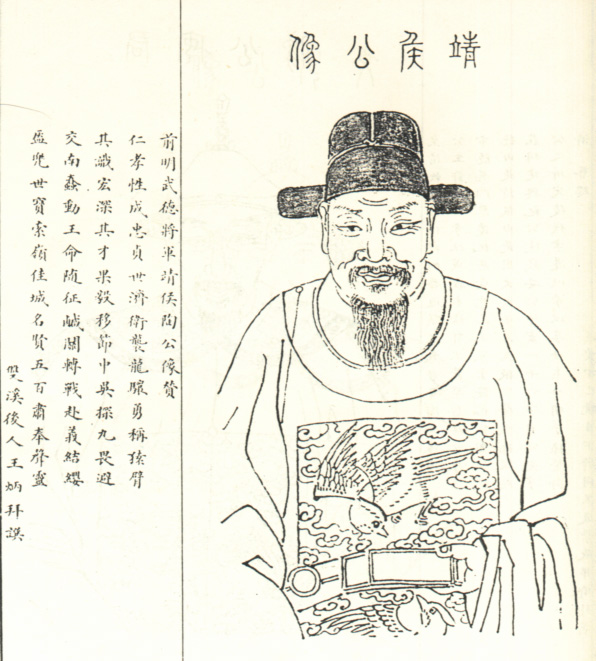 靖侯公像
前明武德將軍靖侯陶公像贊
仁孝性成忠貞世濟衛襲龍驤勇稱猿臂
其識宏深其才果毅移節中吳探丸畏避
交南蠢動王命隨征鹹關轉戰赴義結纓
盔兜世寶索嶺佳城名賢五百肅奉聲靈
雙溪後人王炳拜譔